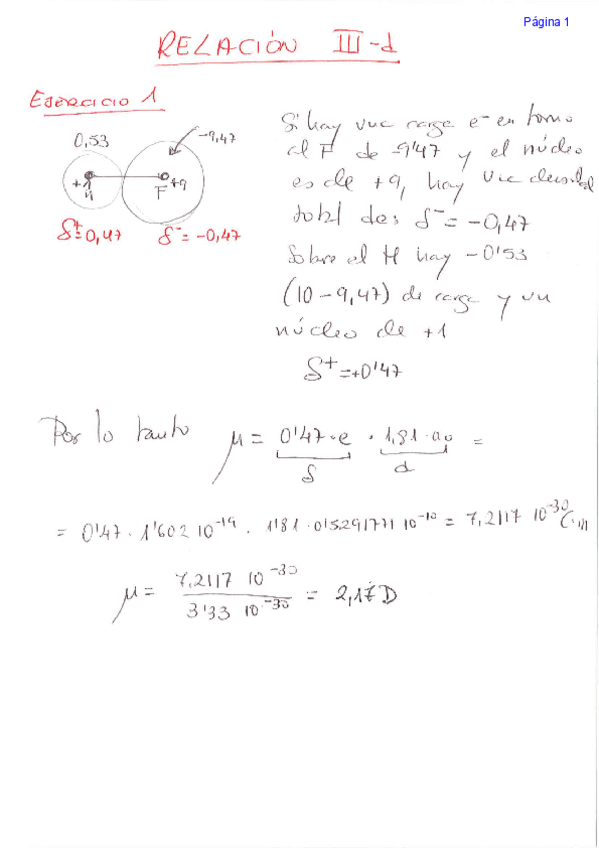 Página 1
RELACIÓN III-d
EJERCICIO 1
0,53
-9,47
+1
H
F
+9
δ+= 0,47
δ-= -0,47
Si hay una carga e- en torno
al F de -9'47 y el núcleo
es de +9, hay una densidad
total de: δ- = -0,47
Sobre el H hay -0'53
(10-9,47) de carga y un
núcleo de +1
δ+ = +0'47
Por lo tanto μ = 0'47·e · 1,81·a₀ =
δ d
= 0'47 · 1'602 10⁻¹⁹ · 1'81 · 0'5291771 10⁻¹⁰ = 7,2117 10⁻³⁰ C·m
μ = 7,2117 10⁻³⁰ / 3'33 10⁻³⁰ = 2,17 D